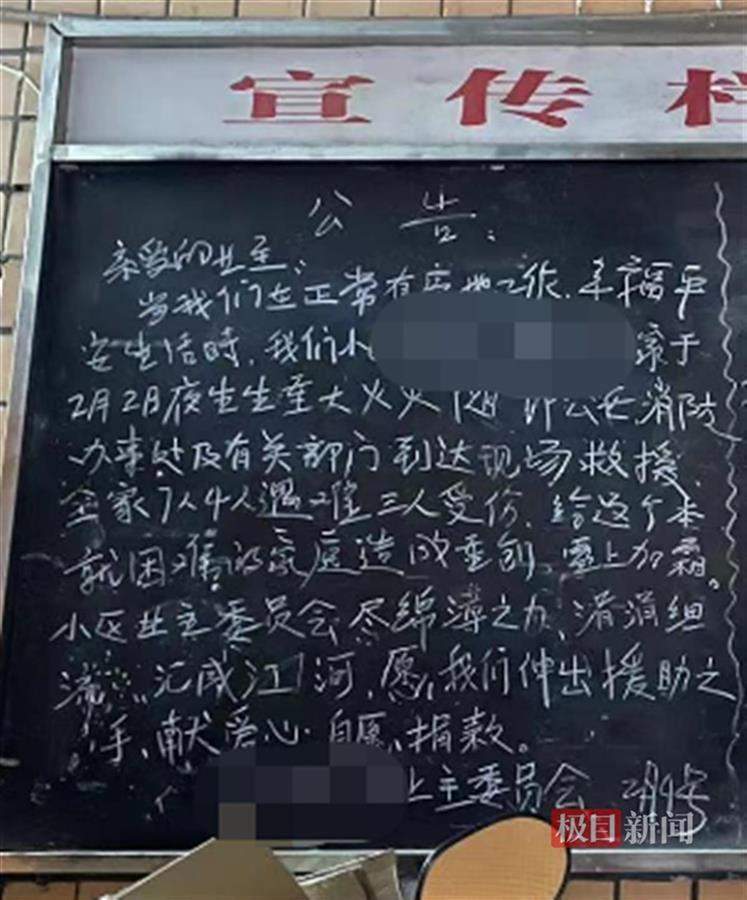 宣传栏
公告:
亲爱的业主:
当我们在正常有 工作.幸福平
安生活时.我们小 家于
2月2日夜生生至大火火 公安消防
办事处及有关部门到达现场救援.
全家7人4人遇难三人受伤.给这个本
就困难的家庭造成重创,雪上加霜。
小区业主委员会尽绵薄之力、涓涓细
流,汇成江河,愿,我们伸出援助之
手、献爱心.自愿、捐款。
主委员会 2月4号
极目新闻